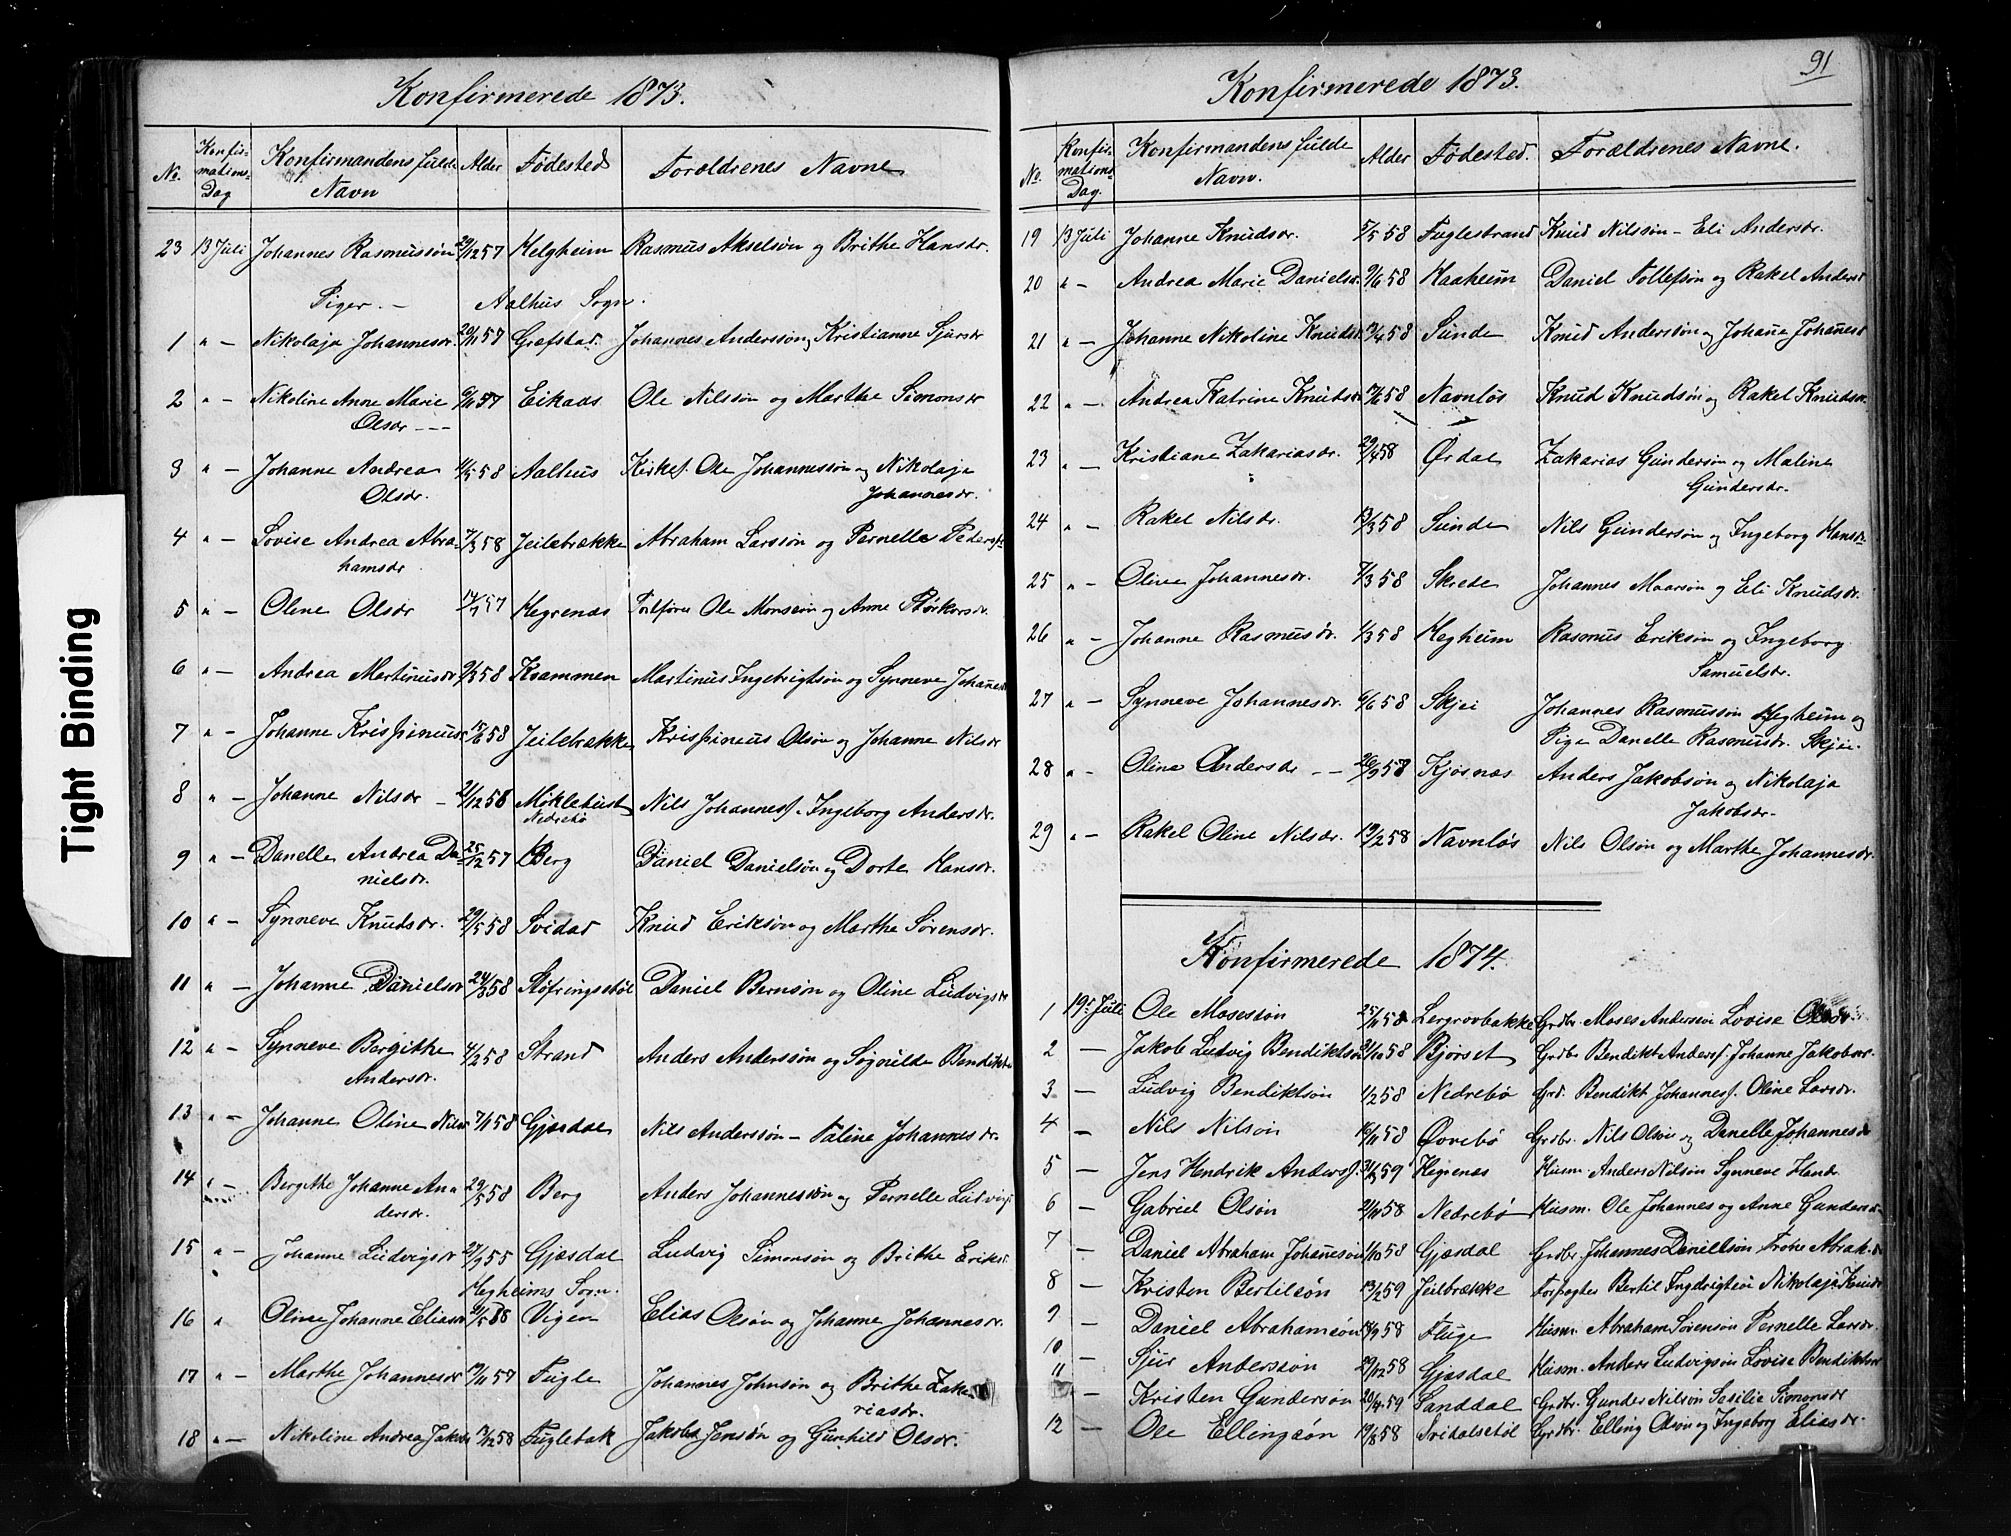 Tight Binding
Konfirmerede 1873.
No. Konfirmations Dag Konfirmandens fulde Navn Alder Fødested Forældrenes Navne
23 13 Juli Johannes Rasmussøn 12 57 Helgheim Rasmus Akselsøn og Brithe Hansdr.
Piger. — Aalhus Sogn.
1 " — Nikolaja Johannesdr. 20/11 57 Grefstad. Johannes Anderssøn, Kristianne Sjursdr
2 " — Nikoline Anne Marie 6/11 57 Eikaas Ole Nilssøn og Marthe Simonsdr
Olsdr — — —
3 " — Johanne Andrea 58 Aalhus Kirkes. Ole Johannessøn og Nikolaja
Olsdr. Johannesdr.
4 " — Lovise Andrea Abra 7/3 58 Jeilebrække Abraham Larssøn og Pernelle Peders
hamsdr
5 " — Oline Olsdr 57 Hegrenæs Ole Monsøn og Anne
6 " — Andrea Martinusdr 9/3 58 Kvammen Martinus Ingebrigtsøn og Synneve Johanesdr
7 " — Johanne Krispinus 15/6 58 Jeilebrække Krispineus Olsøn og Johanne Nilsdr
8 " — Johanne Nilsdr — 21/12 58 Møklebust Nils Johannes. Ingeborg Andersdr.
Nedrebø
9 " — Danelle Andrea Da 25/12 57 Berg Daniel Danielsøn og Dorte Hansdr.
nielsdr.
10 " — Synneve Knudsdr. 29/5 58 Svidal Knud Eriksøn og Marthe Sørensdr.
11 " — Johanne Danielsdr 24/3 58 Støfringsstøl Daniel Bernsøn og Oline Ludvigsdr
12 " — Synneve Bergithe 4/2 58 Strand Anders Anderssøn og Søgnilde Bendikts
Andersdr.
13 " — Johanne Oline Nilsdr 7/1 58 Gjesdal Nils Anderssøn — Taline Johannesdr.
14 " — Bergithe Johanne An 29/5 58 Berg Anders Johannessøn og Pernelle Ludvigs
dersdr.
15 " — Johanne Ludvigsdr 27/9 55 Gjesdal Ludvig Simonsøn og Brithe Eriks
Hegheims Sogn.
16 " Oline Johanne Eliasdr 21/5 58 Vigen Elias Olsøn og Johanne Johannesdr.
17 " — Marthe Johannesdr 19/11 57 Fugle Johannes Johnsøn og Brithe Zaka
riasdr.
18 " — Nikoline Andrea Jakobs 58 Fuglebak Jakob Jensøn og Gunhild Olsdr.
91
Konfirmerede 1873.
No. Konfirmations Dag. Konfirmandens fulde Navn. Alder Fødested. Forældrenes Navne.
19 13 Juli Johanne Knudsdr. 5/5 58 Fuglestrand Knud Nilssøn — Eli Andersdr.
20 " — Andrea Marie Danielsdr. 9/6 58 Haaheim Daniel Tollefsøn og Rakel Anders
21 " — Johanne Nikoline Knudsdr 13/4 58 Sunde Knud Anderssøn og Johane Johanes
22 " — Andrea Katrine Knudsdr 17/6 58 Navnløs Knud Knudsøn og Rakel Knudsdr.
23 " — Kristiane Zakariasdr. 29/4 58 Ørdal Zakarias Gundersøn og Maline
Gundersdr.
24 " — Rakel Nilsdr. 13/3 58 Sunde Nils Gundersøn og Ingeborg Hansdr
25 " — Oline Johannesdr. 7/3 58 Skrede Johannes Maarsøn og Eli Knudsdr.
26 " — Johanne Rasmusdr. 1/3 58 Hegheim Rasmus Eriksøn og Ingeborg
Samuelsdr.
27 " — Synneve Johannesdr. 6/6 58 Skjei Johannes Rasmussøn Hegheim og
Pige Danelle Rasmusdr. Skjei.
28 " — Oline Andersdr — — 26/9 58 Kjøsnæs Anders Jakobsøn og Nikolaja
Jakobsdr.
29 " — Rakel Oline Nilsdr. 19/2 58 Navnløs Nils Olsøn og Marthe Johannesdr.
Konfirmerede 1874.
1 19. Juli Ole Mosessøn 25/11 58 Lergrovbakke Grdbr. Moses Anderssøn Lovise Olsdr
2 — Jakob Ludvig Bendiktsøn 31/10 58 Bjørset Grdbr Bendikt Anders. Johanne Jakobsdr.
3 — Ludvig Bendiktsøn 1/2 58 Nedrebø Grd. Bendikt Johannes. Oline Larsdr.
4 — Nils Nilsøn 16/11 58 Øvrebø Grdbr. Nils Olsøn og Danelle Johannesdr
5 — Jens Hendrik Anders. 59 Hegrenæs Husm. Anders Nilsøn Synneve Hansdr
6 — Gabriel Olsøn 21/11 58 Nedrebø Husm. Ole Johannes og Anne Gunders
7 — Daniel Abraham Johanesøn 1/10 58 Gjesdal Grdbr. Johannes Danielsøn Abrah.dr
8 — Kristen Bertilsøn 13/2 59 Jeilbrække Forpagter Bertil Ingebrigtsøn Nikolaja Knudsdr
9 — Daniel Abrahamsøn 18/9 58 Fluge Husm. Abraham Sørensøn Pernelle Larsdr.
10 — Sjur Anderssøn 29/12 58 Gjesdal Husm. Anders Ludvigsøn Lovise Bendiktsdr
11 — Kristen Gundersøn 20/4 59 Sanddal Grdbr. Gunder Nilsøn Sesilie Simonsdr
12 — Ole Ellingsøn 19/8 58 Svidalsstøl Grdbr. Elling Olsøn og Ingeborg Eliasdr.